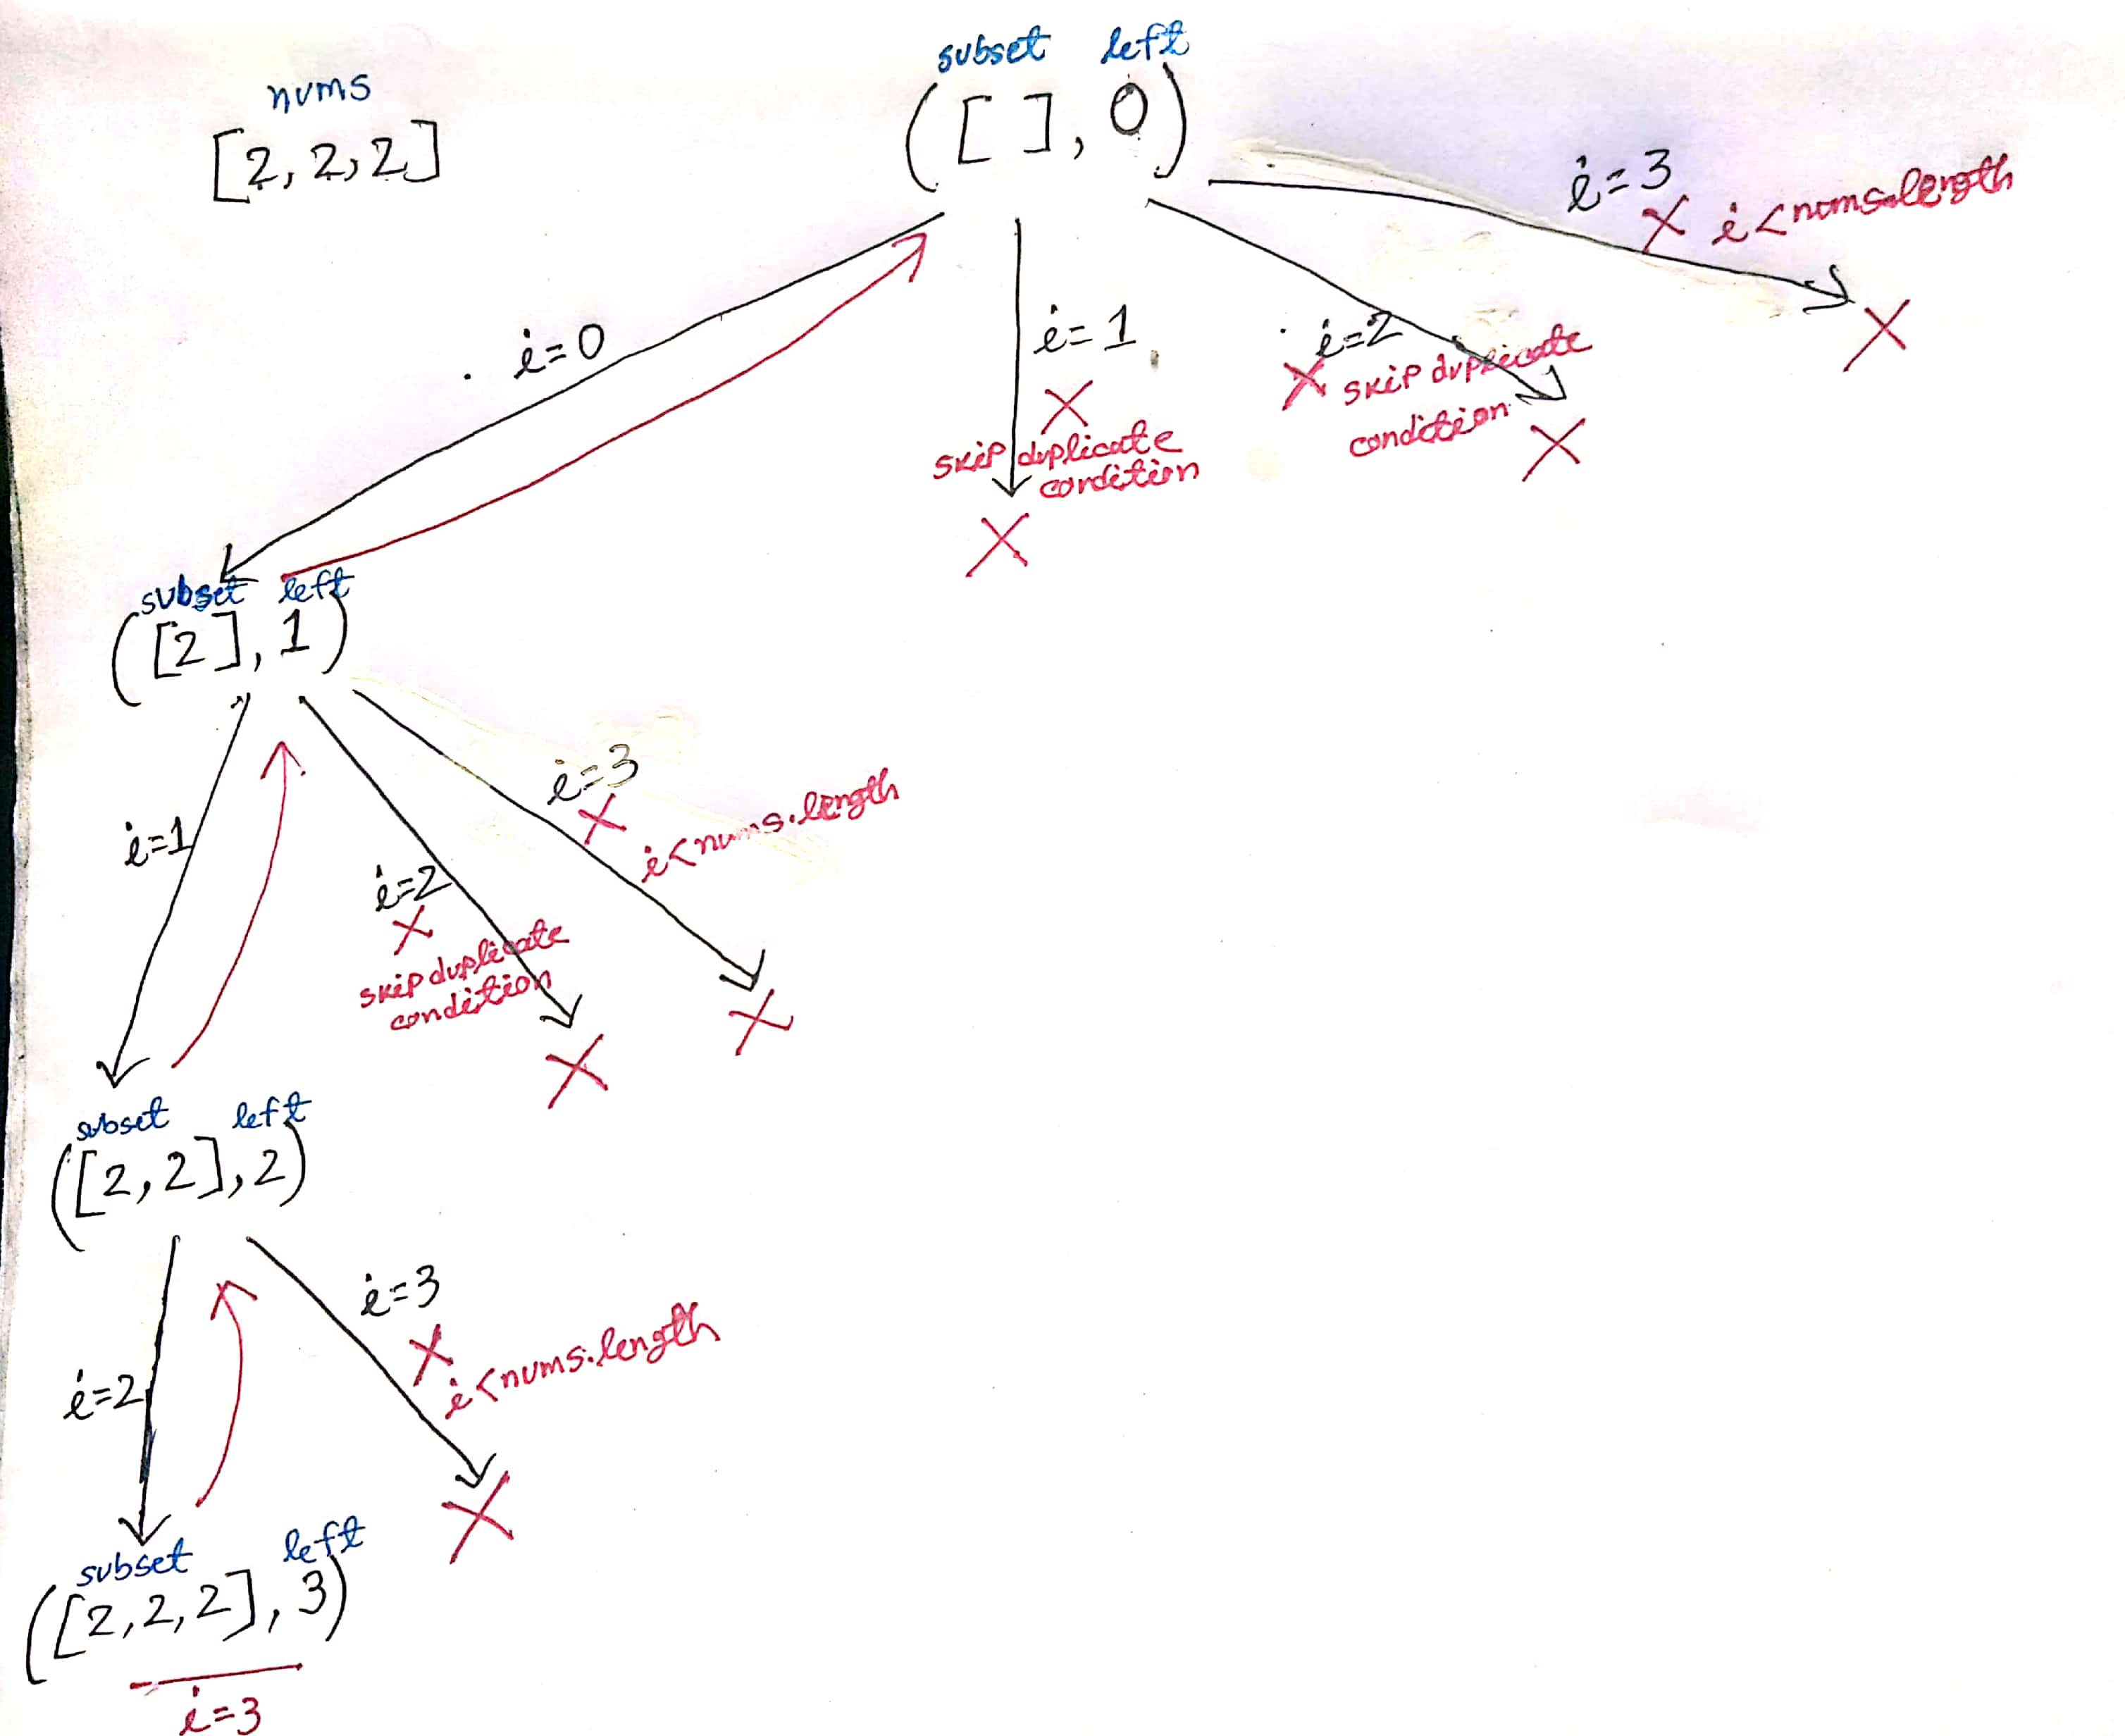 nums
[2,2,2]
subset left
([ ], 0)
i=0
i=1
skip duplicate
condition
i=2
skip duplicate
condition
i=3
i<nums.length
subset left
([2], 1)
i=1
i=2
skip duplicate
condition
i=3
i<nums.length
subset left
([2,2],2)
i=2
i=3
i<nums.length
subset left
([2,2,2],3)
i=3